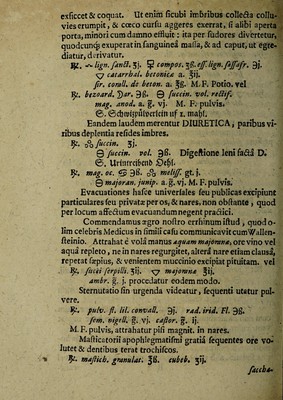 exsiccet & coquat. Ut enim ficubi imbribus collecta collu-
vies erumpit, & cœco cursu aggeres exerrat, si alibi aperta
porta, minori cum damno effluit: ita per sudores divertetur,
quodcunq; exuperat in sanguinea massa, & ad caput, ut ege-
diatur, derivatur.
℞. lign. sanct. ʒj. compos. ʒß. ess. lign. sassafr. ℈j.
🜄 catarrhal. betonicæ a. ℥ij.
sir. corall. de beton. a. ℥ß. M. F. Potio. vel
℞. bezoard. ℈ß. 🜔 succin. vol. rectif.
mag. anod. a. g̅. vj. M. F. pulvis.
S. Schweißpülverlein uf 2. mahl.
Eandem laudem merentur DIURETICA, paribus vi-
ribus deplentia resides imbres.
℞. succin. ʒj.
🜔 succin. vol. ℈ß. Digestione leni facta D.
S. Urintreibend Oehl.
℞. mag. oc. ♋ ℈ß. meliss. gt. j.
🜔 majoran. junip. a. g̅. vj. M. F. pulvis.
Evacuationes hasce universales seu publicas excipiunt
particulares seu privatæ per os, & nares, non obstante, quod
per locum affectum evacuandum negent practici.
Commendamus ægro nostro errhinum istud, quod o-
lim celebris Medicus in simili casu communicavit cum Wallen-
steinio. Attrahat è volâ manus aquam majoranæ, ore vino vel
aquâ repleto, ne in nares regurgitet, alterâ nare etiam clausâ,
repetat sæpius, & venientem muccinio excipiat pituitam. vel
℞. succi serpilli. ℥ij. 🜄 majoranæ ℥ij.
ambr. g̅. j. procedatur eodem modo.
Sternutatio sin urgenda videatur, sequenti utatur pul-
vere.
℞. pulv. fl. lil. convall. ℈j. rad. irid. Fl. ℈ß.
sem. nigell. g̅. vj. castor. g̅. ij.
M. F. pulvis, attrahatur pisi magnit. in nares.
Masticatorii apophlegmatismi gratiâ sequentes ore vo-
lutet & dentibus terat trochiscos.
℞. mastich. granulat. ℥ß. cubeb. ʒij.
saccha-